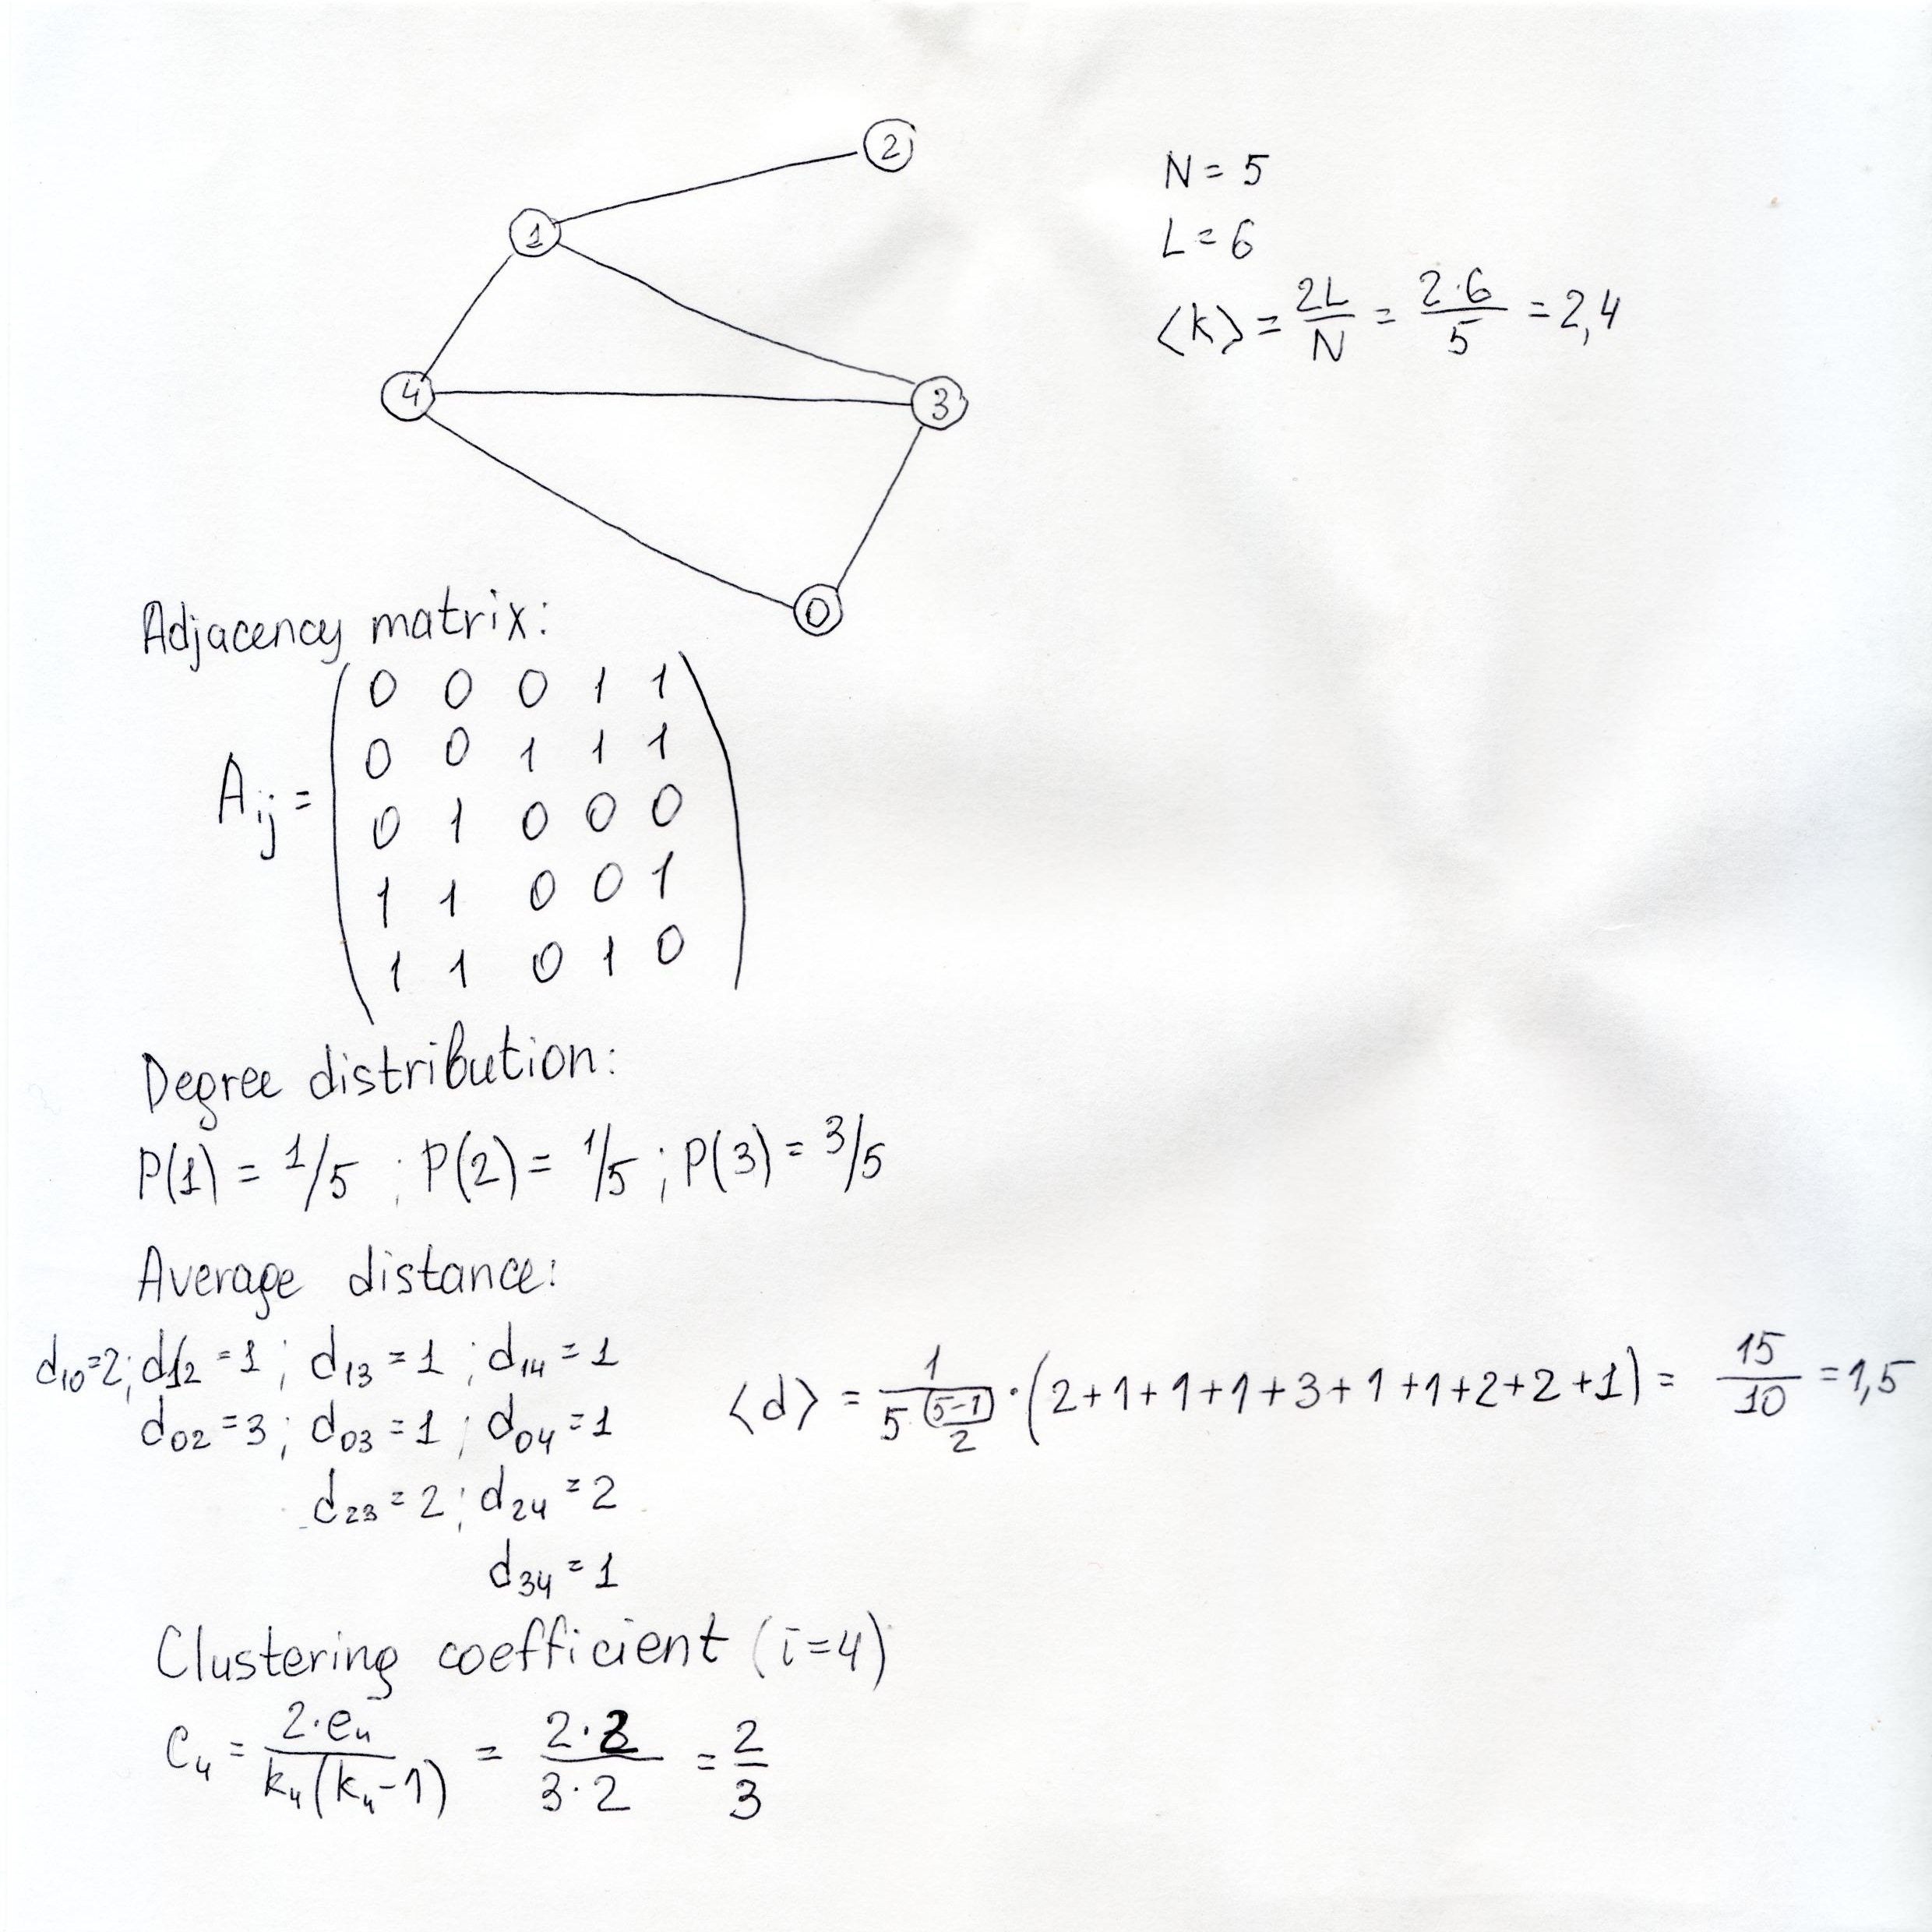 2
1
4
3
0
N = 5
L = 6
⟨k⟩ = 2L/N = 2·6/5 = 2,4
Adjacency matrix:
A_ij =
0 0 0 1 1
0 0 1 1 1
0 1 0 0 0
1 1 0 0 1
1 1 0 1 0
Degree distribution:
P(1) = 1/5 ; P(2) = 1/5 ; P(3) = 3/5
Average distance:
d10=2; d12=1; d13=1; d14=1
d02=3; d03=1; d04=1
d23=2; d24=2
d34=1
⟨d⟩ = 1/(5 (5-1)/2) · (2+1+1+1+3+1+1+2+2+1) = 15/10 = 1,5
Clustering coefficient (i=4)
C4 = 2·e4/k4(k4-1) = 2·2/3·2 = 2/3